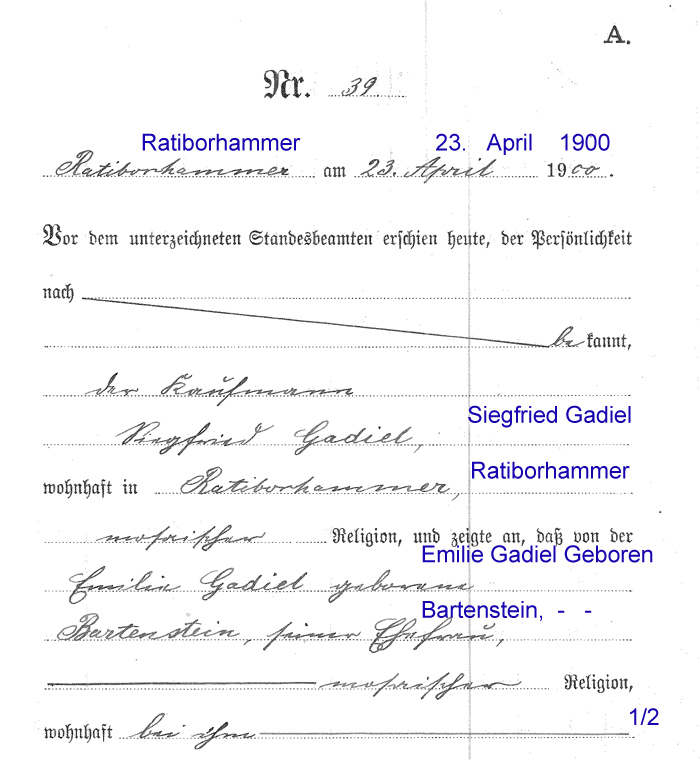 A.
Nr. 39
Ratiborhammer 23. April 1900
Ratiborhammer am 23. April 1900.
Vor dem unterzeichneten Standesbeamten erschien heute, der Persönlichkeit
nach
bekannt,
der Kaufmann
Siegfried Gadiel
Siegfried Gadiel,
Ratiborhammer
wohnhaft in Ratiborhammer,
mosaischer Religion, und zeigte an, daß von der
Emilie Gadiel Geboren
Emilie Gadiel geborene
Bartenstein, - -
Bartenstein, seiner Ehefrau,
mosaischer Religion,
1/2
wohnhaft bei ihm